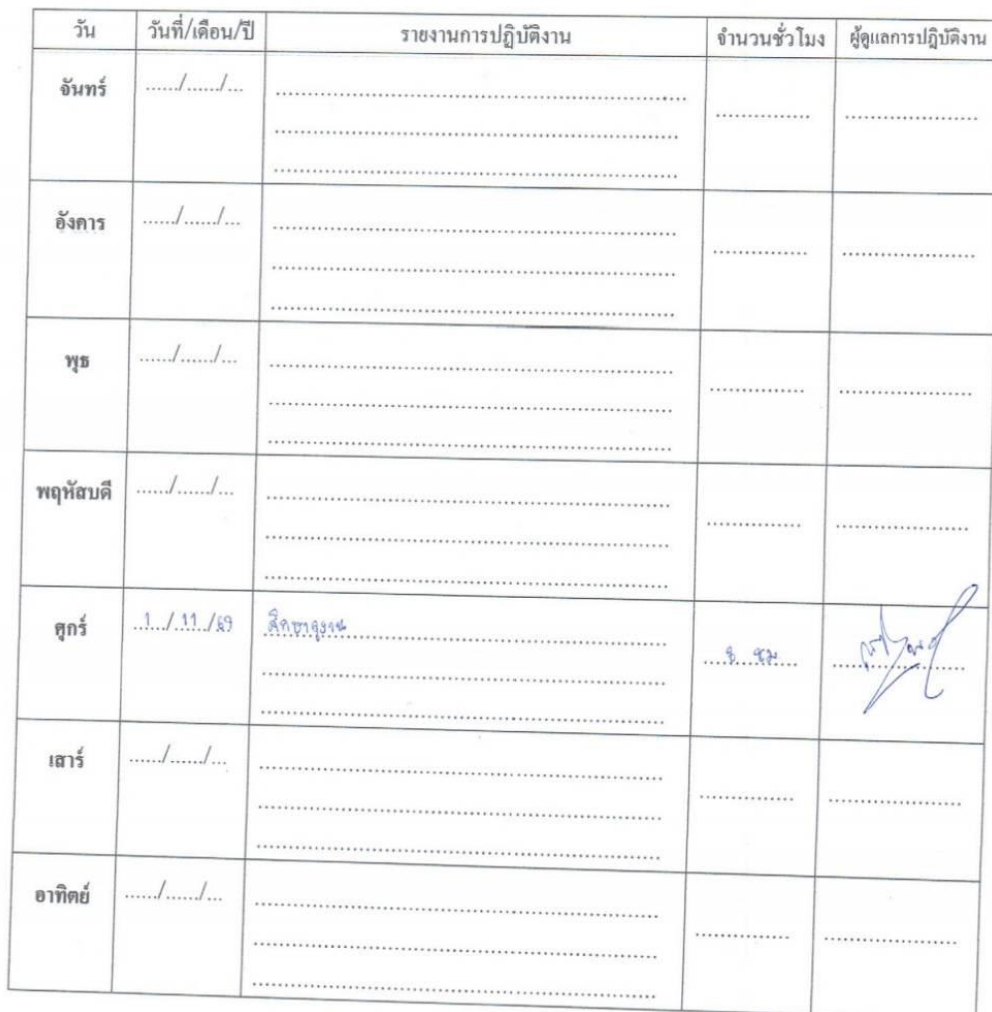 วัน วันที่/เดือน/ปี รายงานการปฏิบัติงาน จำนวนชั่วโมง ผู้ดูแลการปฏิบัติงาน
จันทร์ ....../....../...
อังคาร ....../....../...
พุธ ....../....../...
พฤหัสบดี ....../....../...
ศุกร์ 1 / 11 / 69 ศึกษาดูงาน 8 ชม
เสาร์ ....../....../...
อาทิตย์ ....../....../...